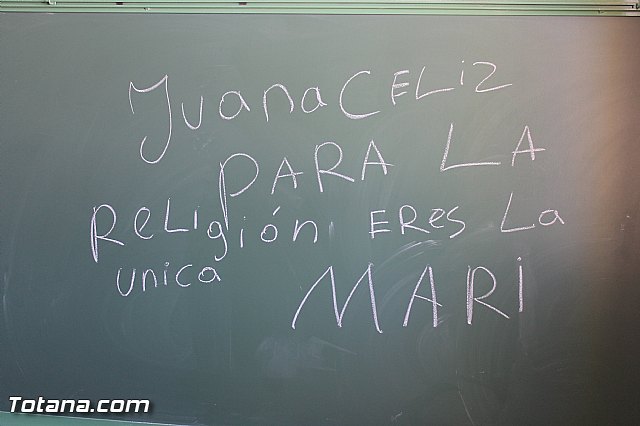 Juana CELiz
PARA LA
ReLigión ERES La
unica MARi
Totana.com